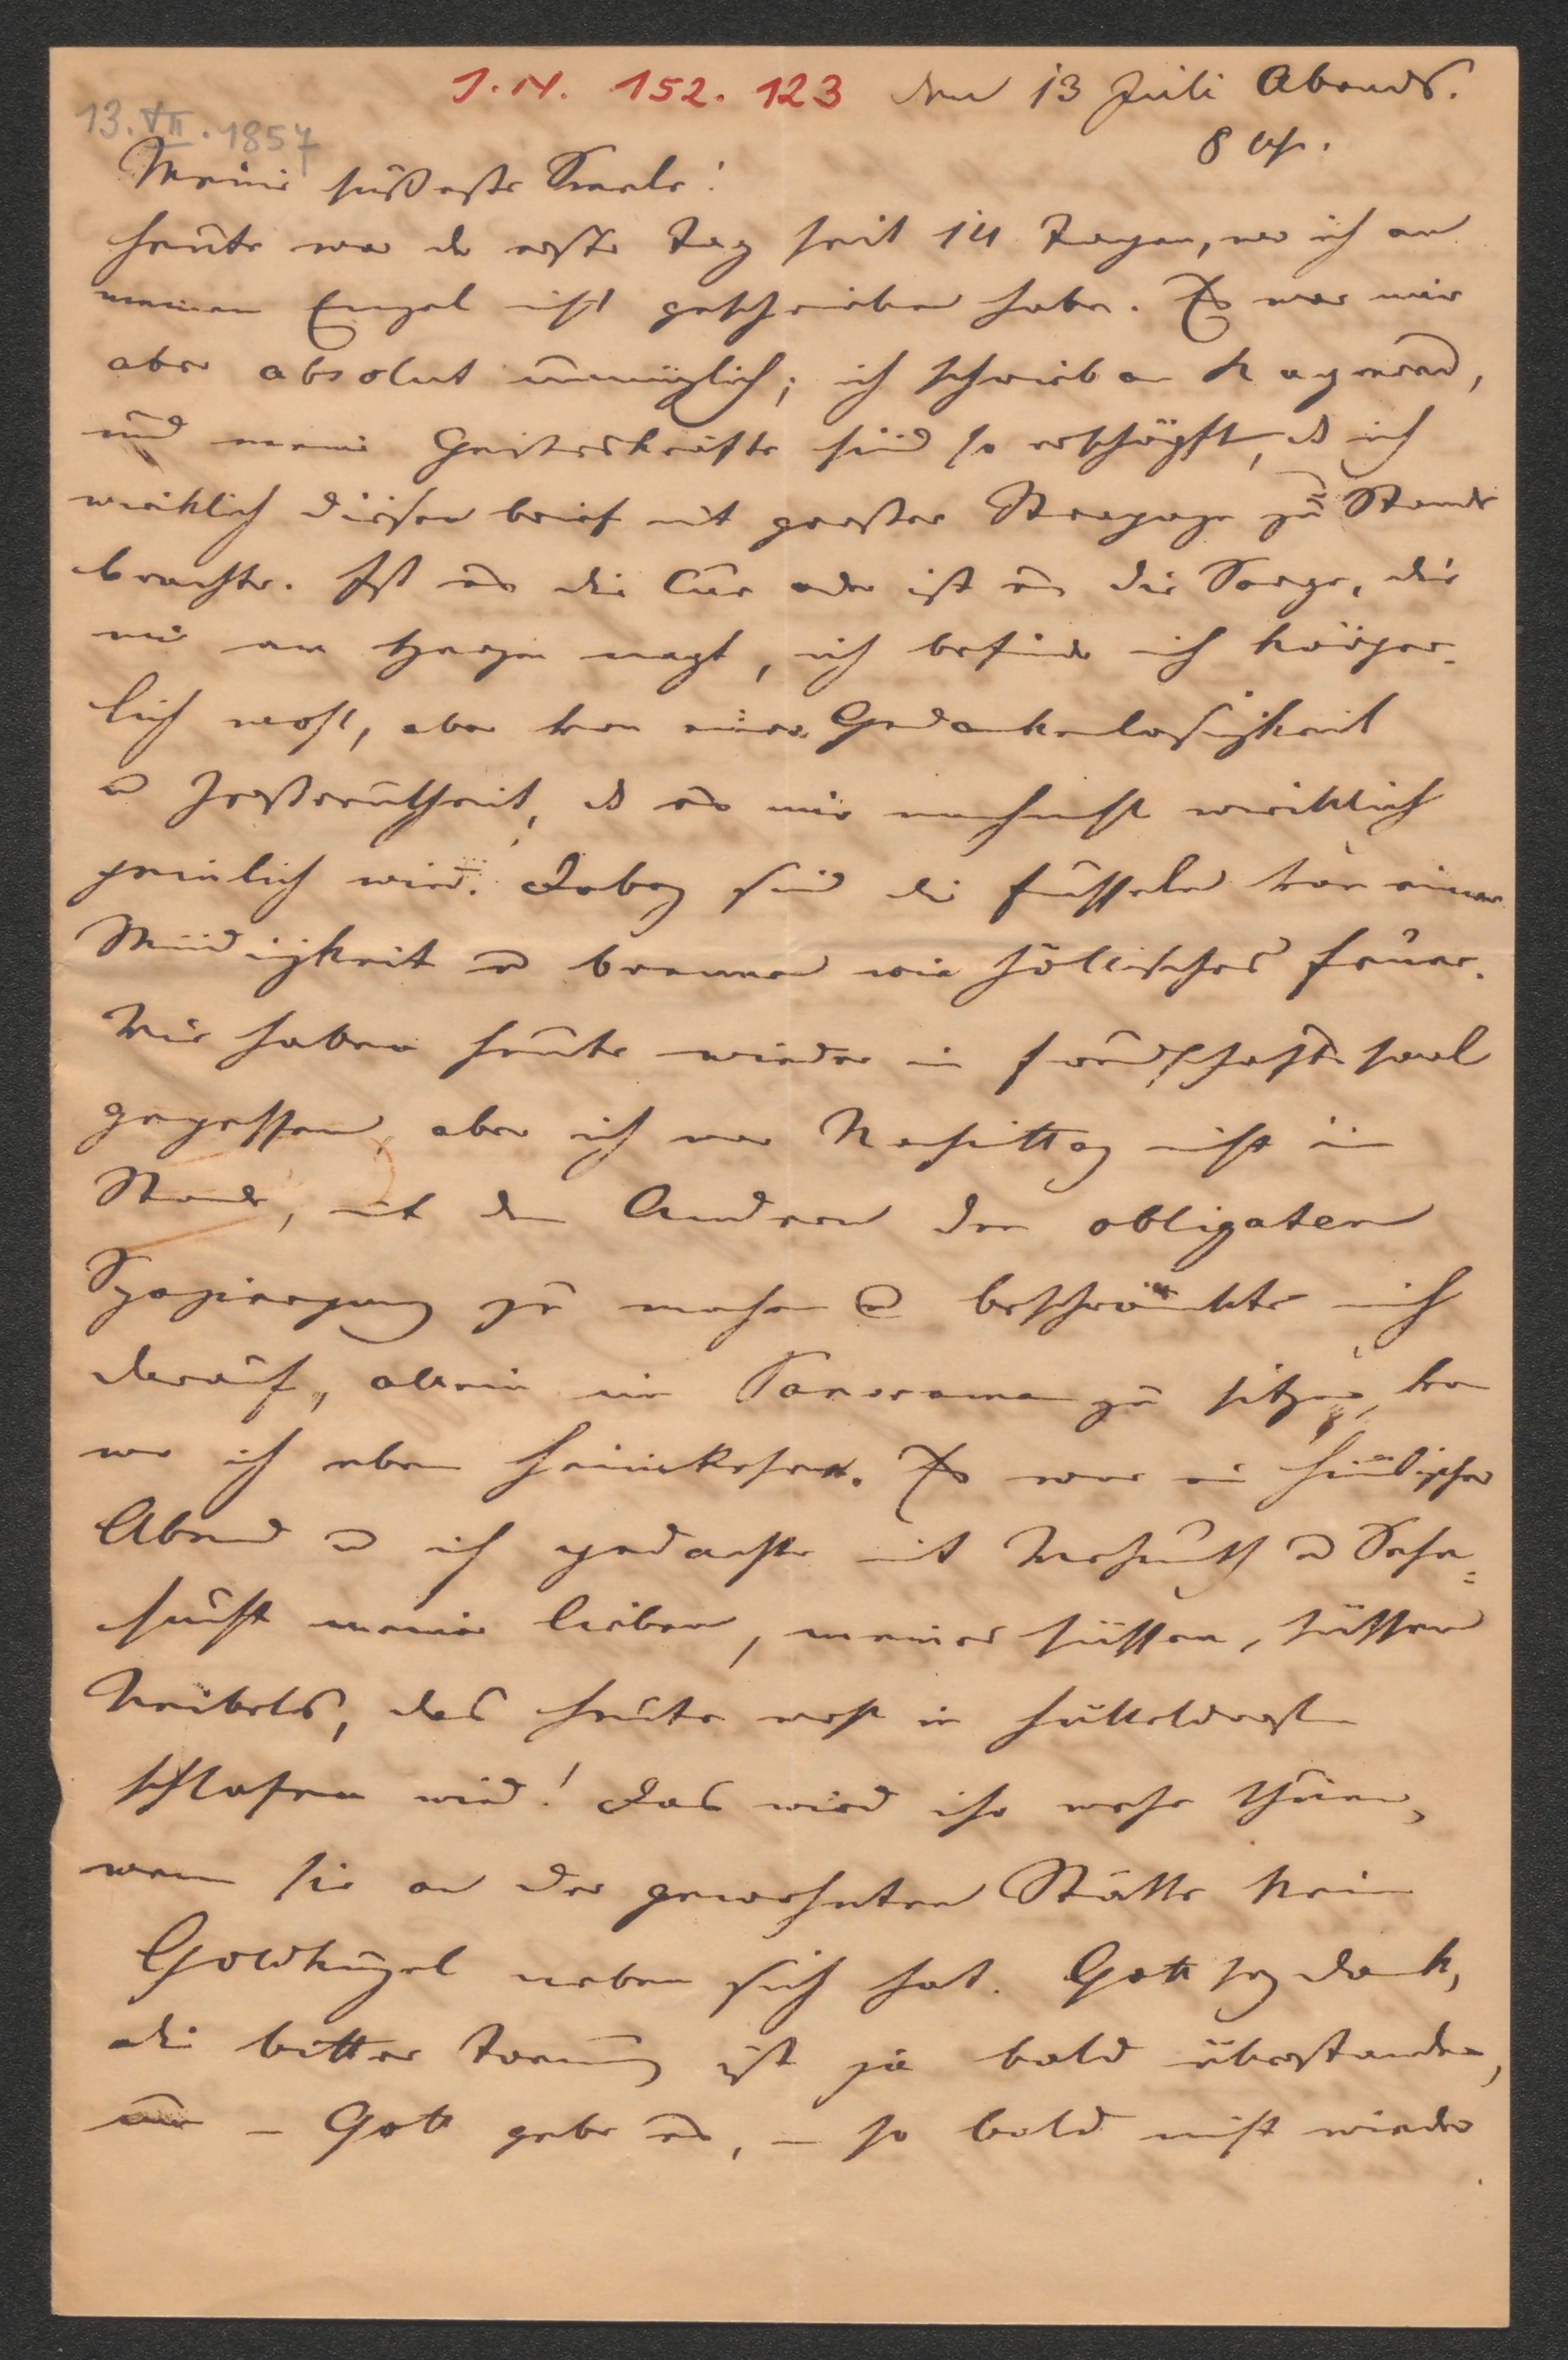 J.N. 152.123 den 13 Juli Abends.
8 Uhr.
13.VII.1857
Meine süßeste Seele!
Heute war der erste Tag seit 14 Tagen, wo ich an
meinen Engel nicht geschrieben habe. Es war mir
aber absolut unmöglich; ich schrieb an
und meine Geisteskräfte sind so erschöpft, dß ich
wirklich diesen Brief mit großer Strapaze zu Stande
brachte. Ist es die Cur oder ist es die Sorge, die
mir am Herzen nagt, ich befinde mich körper-
lich wohl, aber von einer Gedankenlosigkeit
u Zerstreutheit, dß es mir nachgerade wirklich
peinlich wird. Dabey sind die Füsseln von einer
Müdigkeit u brennen wie höllisches Feuer.
Wir haben heute wieder im Freundschaftssaal
gegessen, aber ich war Nachmittag nicht im
Stande, mit den Andern den obligaten
Spaziergang zu machen u beschränkte mich
darauf, allein im Panorama zu sitzen, von
wo ich eben heimkehre. Es war ein himmlischer
Abend u ich gedachte mit Wehmuth u Sehn=
sucht meiner lieben, meines süssen, süssen
Weibels, das heute wohl in Hütteldorf
schlafen wird! Das wird ihr wehe thuen,
wenn sie an der gewohnten Stätte kein
Goldkugel neben sich hat. Gott sey Dank,
die bittere Trennung ist ja bald überstanden,
um – Gott gebe es, – so bald nicht wieder